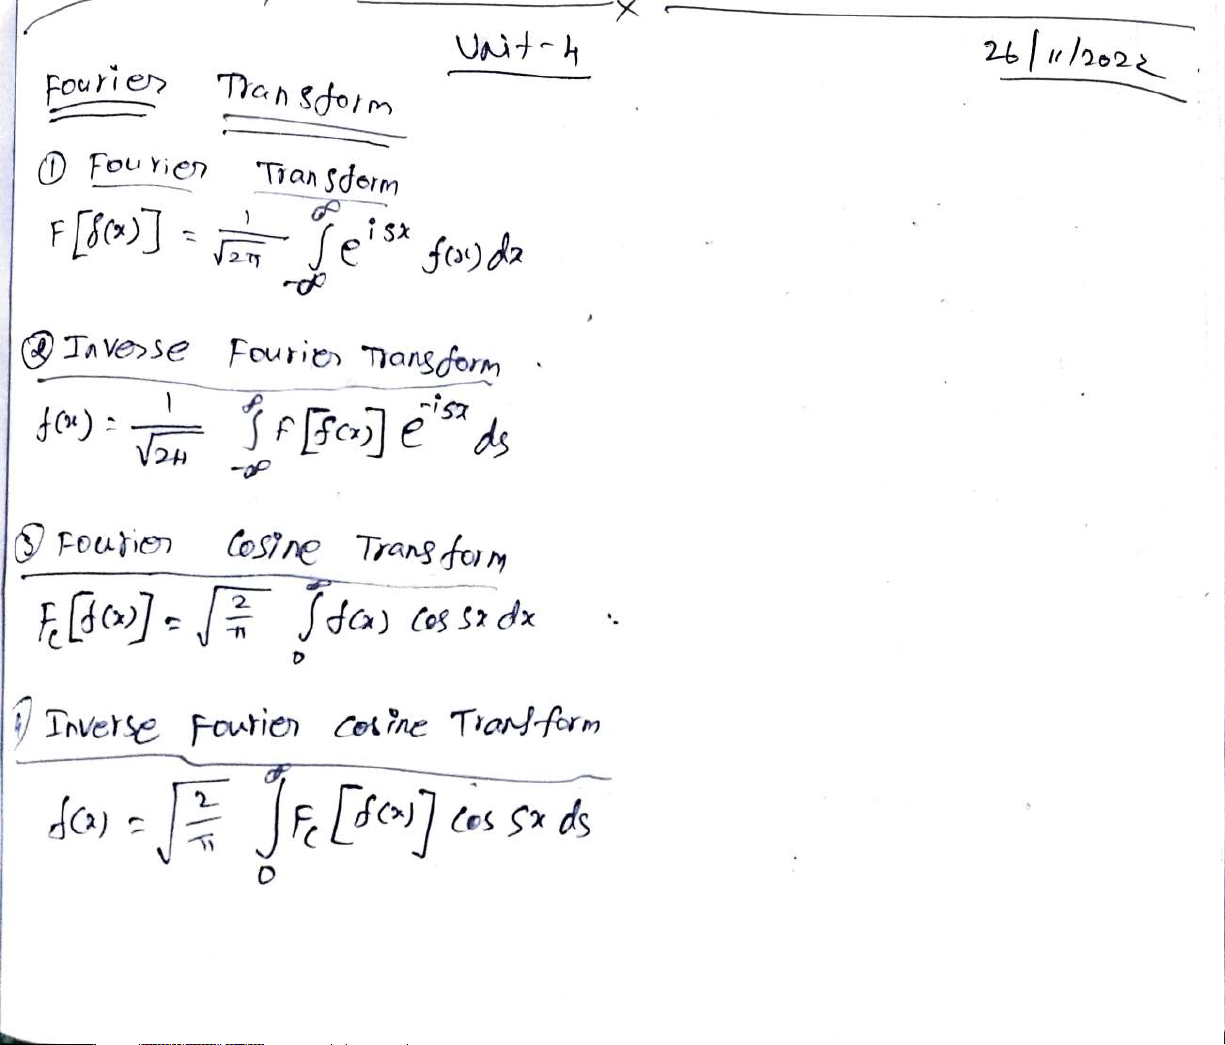 Unit-4
26/11/2022
Fourier Transform
① Fourier Transform
F[f(x)] = 1/√2π ∫_{-∞}^{∞} e^{isx} f(x) dx
② Inverse Fourier Transform
f(x) = 1/√2π ∫_{-∞}^{∞} F[f(x)] e^{-isx} ds
③ Fourier Cosine Transform
F_c[f(x)] = √(2/π) ∫_0^∞ f(x) cos sx dx
Inverse Fourier Cosine Transform
f(x) = √(2/π) ∫_0^∞ F_c[f(x)] cos sx ds